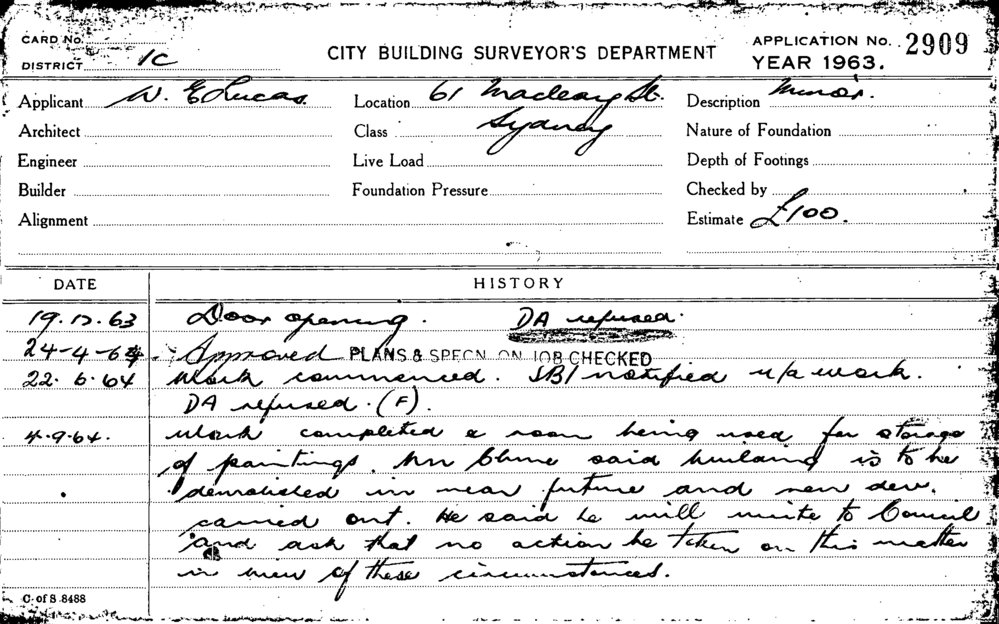 CARD No.
DISTRICT 1C
CITY BUILDING SURVEYOR'S DEPARTMENT
APPLICATION No. 2909
YEAR 1963.
Applicant W. E Lucas. Location 61 Macleay St. Description Minor.
Architect Class Sydney Nature of Foundation
Engineer Live Load Depth of Footings
Builder Foundation Pressure Checked by
Alignment Estimate £100.
DATE HISTORY
19.12.63 Door opening. DA refused.
24-4-64 Approved PLANS & SPECN. ON JOB CHECKED
22.6.64 Work commenced. SBI notified u/a work.
DA refused. (F).
4.9.64. Work completed & room being used for storage
of paintings. Mr Clune said building is to be
demolished in near future and new dev.
carried out. He said he will write to Council
and ask that no action be taken on this matter
in view of these circumstances.
C. of S 8488